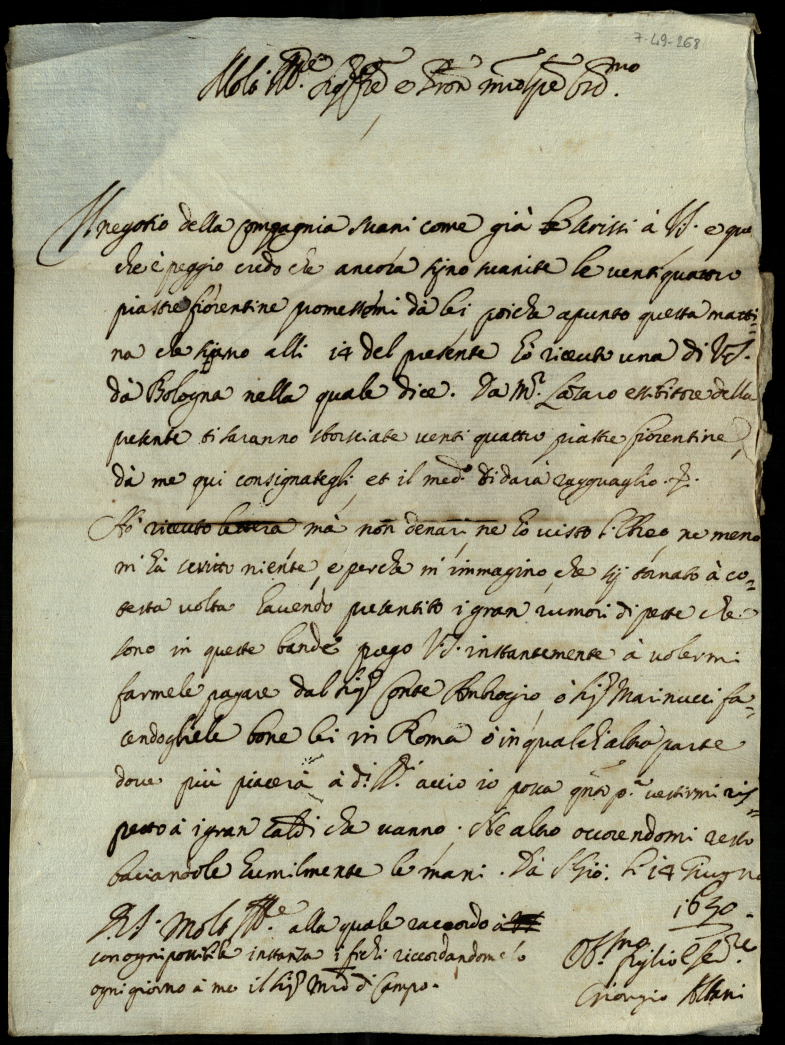 7-49-268
Molto Ill.re Sig.r e Pron mio
Il negotio della compagnia svanì come già le scrissi à V.S. e quel
che è peggio credo che ancora sijno svanite le venti quattro
piastre fiorentine promessomi dà lei poiche apunto questa matti=
na che siamo alli 14 del presente hò riceuto una di V.S.
dà Bologna nella quale dice. Da M.r Lazaro essibitore della
presente ti saranno sborsiate venti quattro piastre fiorentine,
dà me qui consignategli et il med.o ti darà ragguaglio
Hò riceuto lettera mà non denari, ne hò visto ne meno
mi hà scritto niente, e perche m'immagino, che sij tornato à co=
testa volta havendo presentito i gran rumori di peste che
sono in queste bande prego V.S. instantemente à volermi
farmele pagare dal Sig.r Conte Ambrogio, ò Sig.r Marinucci fa=
cendogliele bone lei in Roma ò in qualch'altra parte
dove più piacerà à acciò io possa q.to p.a vestirmi ris=
petto à i gran caldi che vanno. Ne altro occorendomi resto
baciandole humilmente le mani. Dà li 14 Giugno
1630.
D.V.S. Molto Ill.re alla quale raccordo à
con ogni possibile instanza i fichi riccordandomelo
ogni giorno à me il Sig.r M.ro di Campo.
Ob.mo figlio e Ser.re
Giorgio Albani